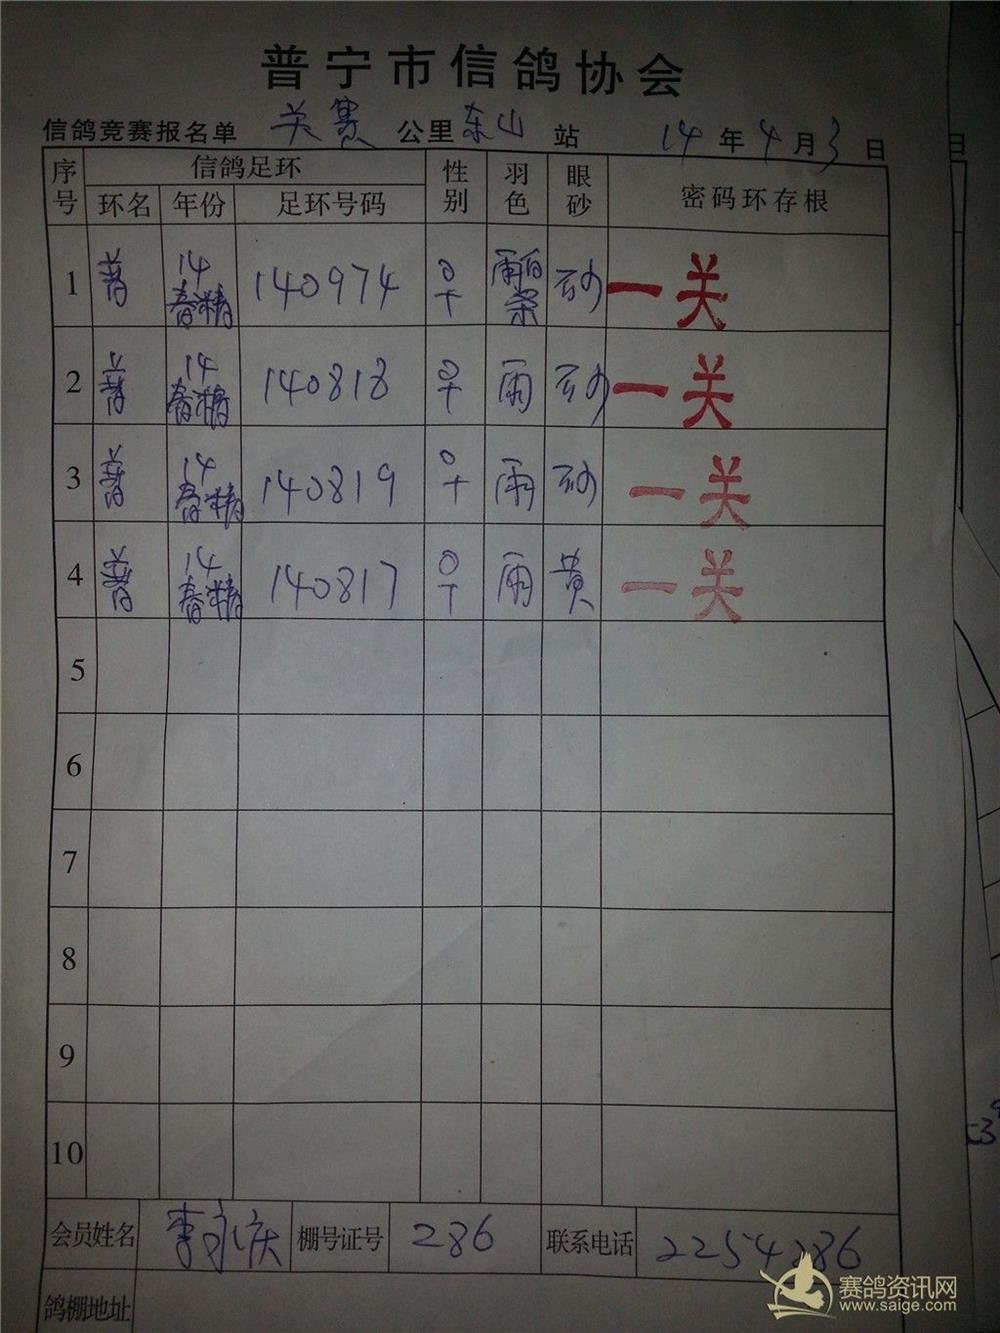 普宁市信鸽协会
信鸽竞赛报名单 关赛 公里 东山 站 14年4月3日
序号 信鸽足环 性别 羽色 眼砂 密码环存根
环名 年份 足环号码
1 普 14 春精 140974 ♀ 雨白条 砂 一关
2 普 14 春棚 140818 ♀ 雨 砂 一关
3 普 14 春精 140819 ♀ 雨 砂 一关
4 普 14 春精 140817 ♀ 雨 黄 一关
5
6
7
8
9
10
会员姓名 李永庆 棚号证号 286 联系电话 2254286
鸽棚地址
日
赛鸽资讯网
www.saige.com